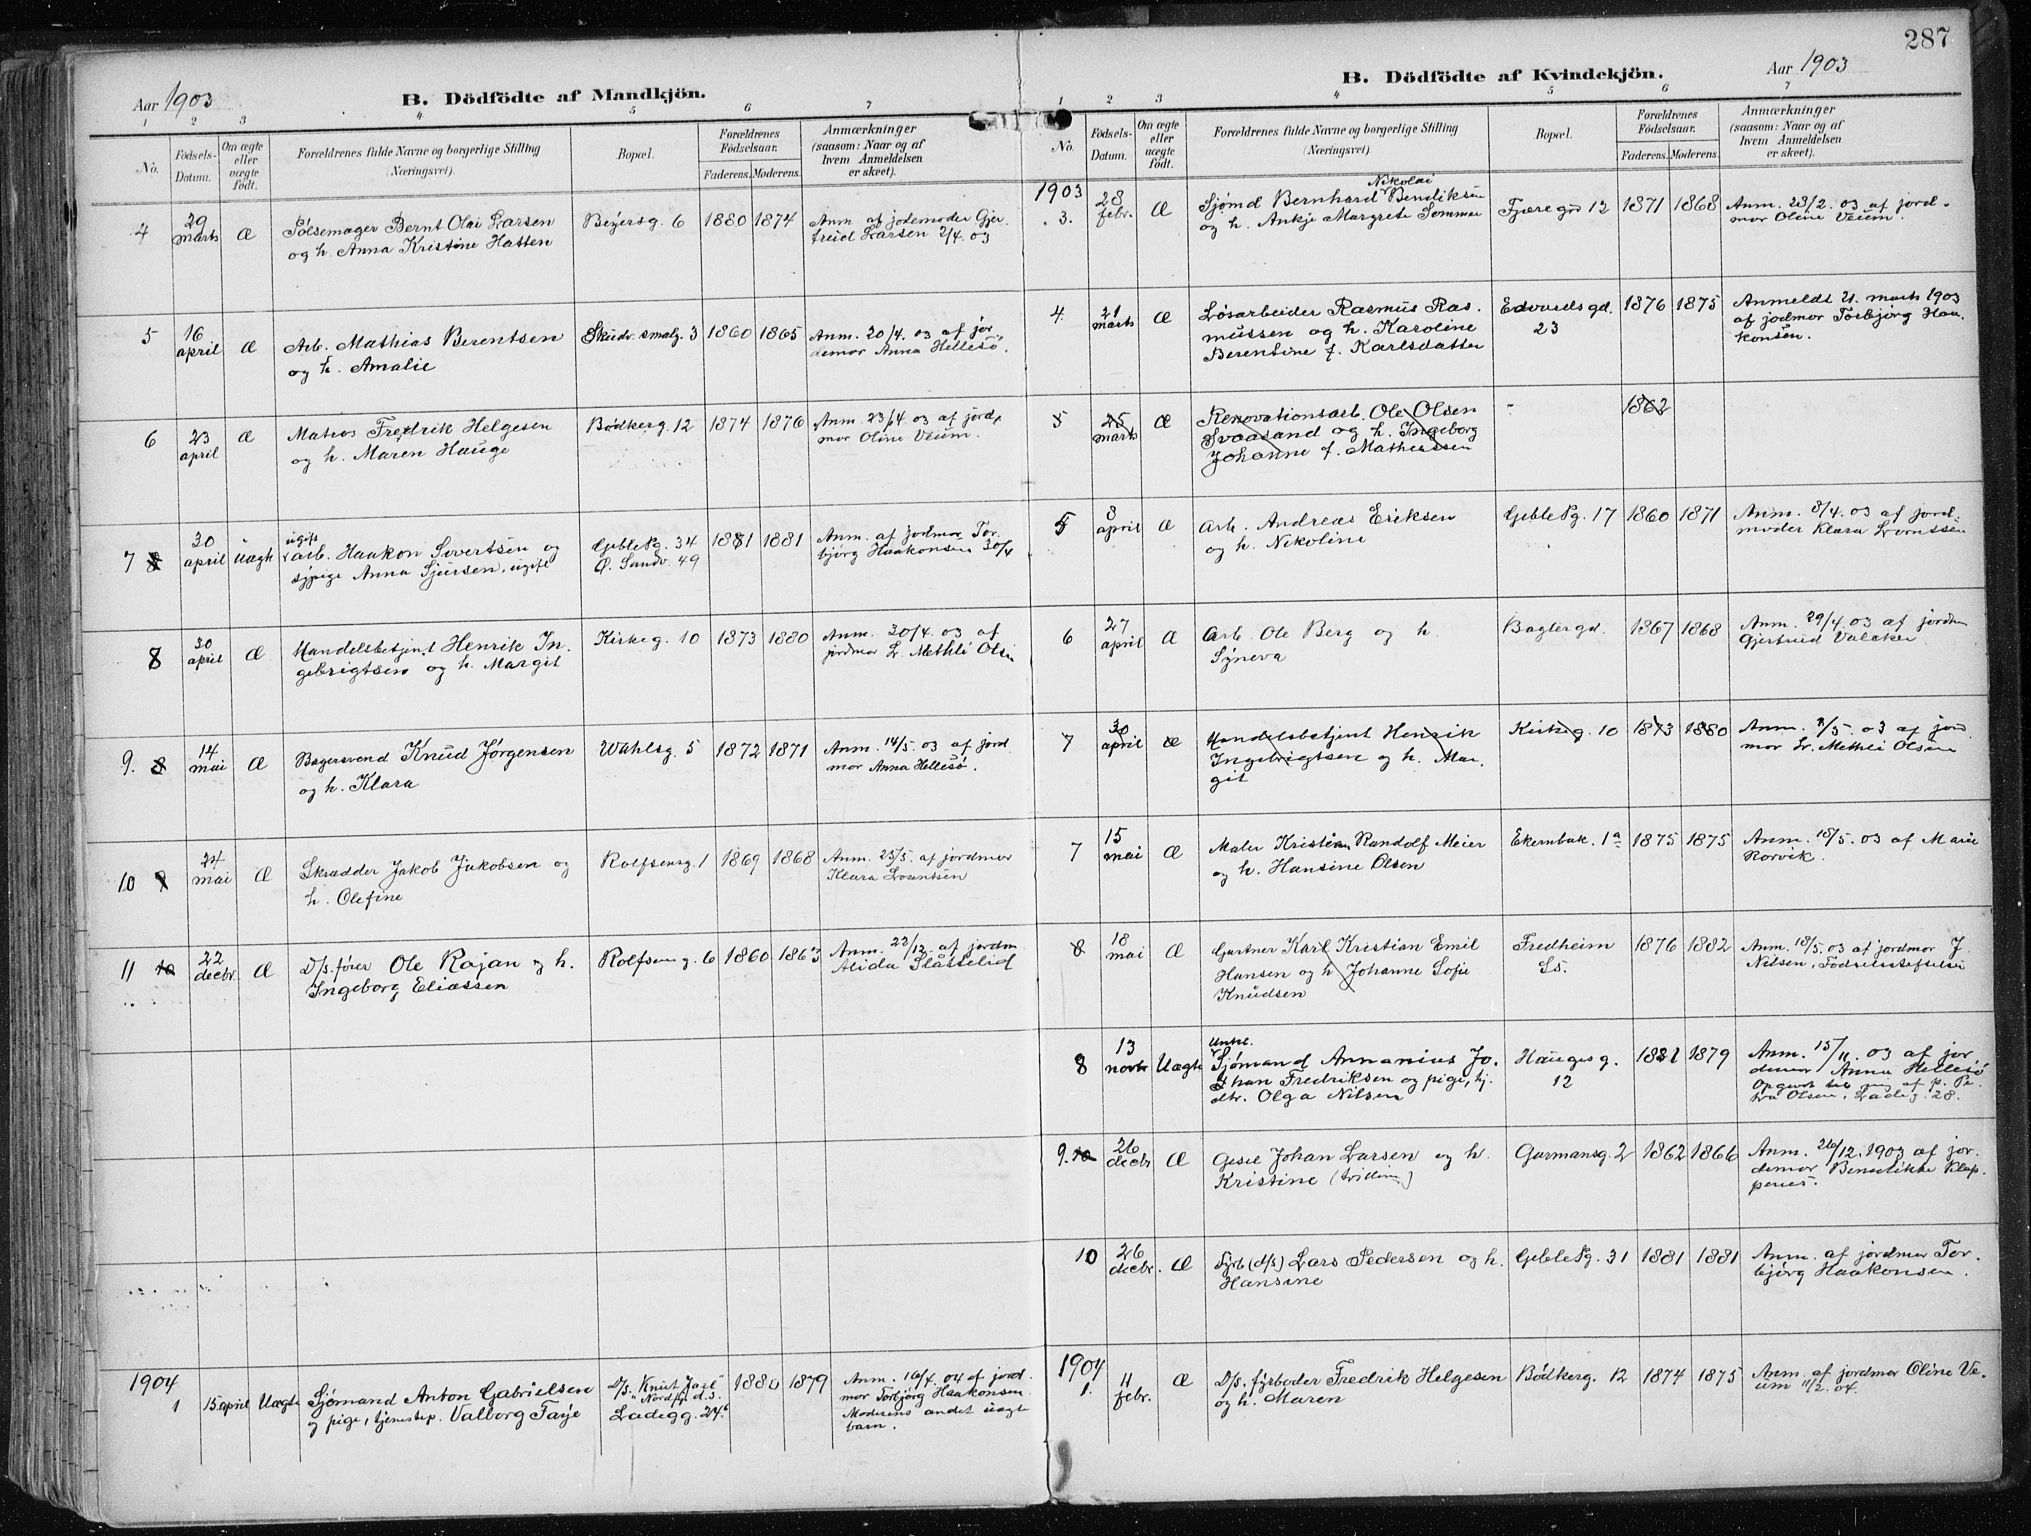 287
Aar 1903
B. Dödfödte af Mandkjön.
1 2 3 4 5 6 7
No.
Födsels-Datum.
Om ægte eller uægte födt.
Forældrenes fulde Navne og borgerlige Stilling (Næringsvei).
Bopæl.
Forældrenes Födselsaar.
Faderens. Moderens.
Anmærkninger (saasom: Naar og af hvem Anmeldelsen er skeet).
4 29 marts Æ Pølsemager Bernt Olai Larsen Beyersg. 6 1880 1874 Anm. af jodemoder Gjer-
og h. Anna Kristine Hatten trud Larsen 2/4. 03
5 16 april Æ Arb. Mathias Berentsen Skudr. smalg. 3 1860 1865 Anm. 20/4. 03 af jor-
og h. Amalie demor Anna Hellesø.
6 23 april Æ Matros Fredrik Helgesen Bødkerg. 12 1874 1876 Anm. 23/4 03 af jord-
og h. Maren Hauge mor Oline Veum.
7 8 30 april Uægte ugift
arb. Haakon Sivertsen og Gamle Pg. 34 1881 1881 Anm. af jordmor Tor-
sypige Anna Sjursen, ugift Ø. Sandv. 49 bjørg Haakonsen 30/4
8 30 april Æ Handelsbetjent Henrik In- Kirkeg. 10 1873 1880 Anm. 30/4. 03 af
gebrigtsen og h. Margit jordmor L. Methli Olsen
9. 8 14 mai Æ Bagersvend Knud Jørgensen Wahlsg. 5 1872 1871 Anm. 14/5. 03 af jord
og h. Klara mor Anna Hellesø.
10 9 24 mai Æ Skrædder Jakob Jakobsen og Rolfsensg. 1 1869 1868 Anm. 25/5. af jordmor
h. Olefine Klara Lorentsen
11 10 22 decbr. Æ D/s. fører Ole Rojan og h. Rolfsensg. 6 1860 1863 Anm. 22/12. af jordm.
Ingeborg Eliassen Alida Slåttelid
1904
1 15 april Uægte Sjømand Anton Gabrielsen D/s. "Knut Jarl" 1880 1879 Anm. 16/4. 04 af jord
og pige, tjenestep. Valborg Faye "Nordfj. d.s. mor Torbjørg Haakonsen
Ladegg. 24b Moderens andet uægte
barn.
B. Dödfödte af Kvindekjön.
Aar 1903
1 2 3 4 5 6 7
No.
Födsels-Datum.
Om ægte eller uægte födt.
Forældrenes fulde Navne og borgerlige Stilling (Næringsvei).
Bopæl.
Forældrenes Födselsaar.
Faderens. Moderens.
Anmærkninger (saasom: Naar og af hvem Anmeldelsen er skeet).
1903 Nikolai
3. 28 febr. Æ Sjømd Bernhard Bendiksen Fjæregrd 12 1871 1868 Anm. 28/2. 03 af jord-
og h. Ankje Margrete Sommer mor Oline Veum.
4 21 marts Æ Løsarbeider Rasmus Ras- Edvardsgd. 1876 1875 Anmeldt 21. marts 1903
mussen og h. Karoline 23 af jodmor Torbjørg Haa-
Berentine f. Karlsdatter konsen.
5 25 marts Æ Renovationsarb. Ole Olsen 1862
Svaasand og h. Ingeborg
Johanne f. Mathiassen
5 8 april Æ Arb. Andreas Eriksen Gamle Pg. 17 1860 1871 Anm. 8/4. 03 af jord-
og h. Nikoline moder Klara Lorentsen
6 27 april Æ Arb. Ole Berg og h. Baglergd. 1867 1868 Anm. 29/4. 03 af jordm
Syneva Gjertrud Valaker
7 30 april Æ Handelsbetjent Henrik Kirkeg. 10 1873 1880 Anm. 1/5. 03 af jord
Ingebrigtsen og h. Mar- mor L. Methli Olsen
git
7 15 mai Æ Maler Kristian Randolf Meier Ekernbak. 1a 1875 1875 Anm. 18/5. 03 af Marie
og h. Hansine Olsen Rorvik.
8 18 mai Æ Gartner Karl Kristian Emil Fredheim 1876 1882 Anm. 18/5. 03 af jordmor J.
Hansen og h Johanne Sofie Ls. Nilsen, Fødselsstiftelse
Knudsen
8 13 novbr Uægte Ungk.
Sjømand Annanius Jo- Hauges g. 1881 1879 Anm. 15/11. 03 af jor-
han Fredriksen og pige, hj. 12 demor Anna Hellesø
dtr. Olga Nilsen Opgivet til mig af p. Pe-
tra Olsen, Ladeg. 28.
9. 10 26 decbr Æ Gesel Johan Larsen og h. Garmansg. 2 1862 1866 Anm. 26/12. 1903 af jor-
Kristine (tvilling) demor Benedikte Klep-
penes.
10 26 decbr. Æ Fyrb (d/s) Lars Pedersen og h. Gamle Pg. 31 1881 1881 Anm. af jordmor Tor-
Hansine bjørg Haakonsen.
1904
1. 11 febr. Æ D/s. fyrbøder Fredrik Helgesen Bødkerg. 12 1874 1875 Anm. af jordmor Oline Ve-
og h. Maren um 11/2. 04.